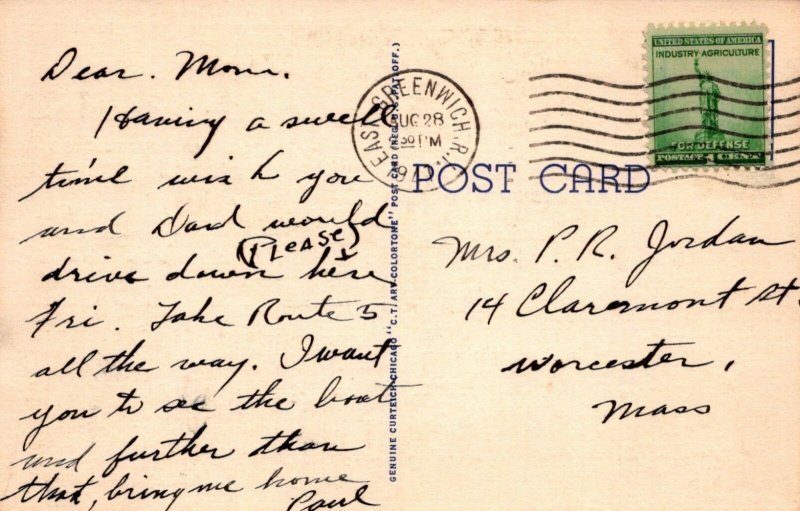 Dear. Mom.
Having a swell
time wish you
and Dad would
(Please)
drive down here
Fri. Take Route 5
all the way. I want
you to see the boat
and further than
that, bring me home
Paul
GENUINE CURTEICH-CHICAGO "C.T. ART-COLORTONE" POST CARD (REG. U.S. PAT. OFF.)
EAST GREENWICH, R.I.
AUG 28
30 PM
194
UNITED STATES OF AMERICA
INDUSTRY·AGRICULTURE
FOR DEFENSE
POSTAGE 1 CENT
POST CARD
Mrs. P. R. Jordan
14 Claremont St.
Worcester,
Mass